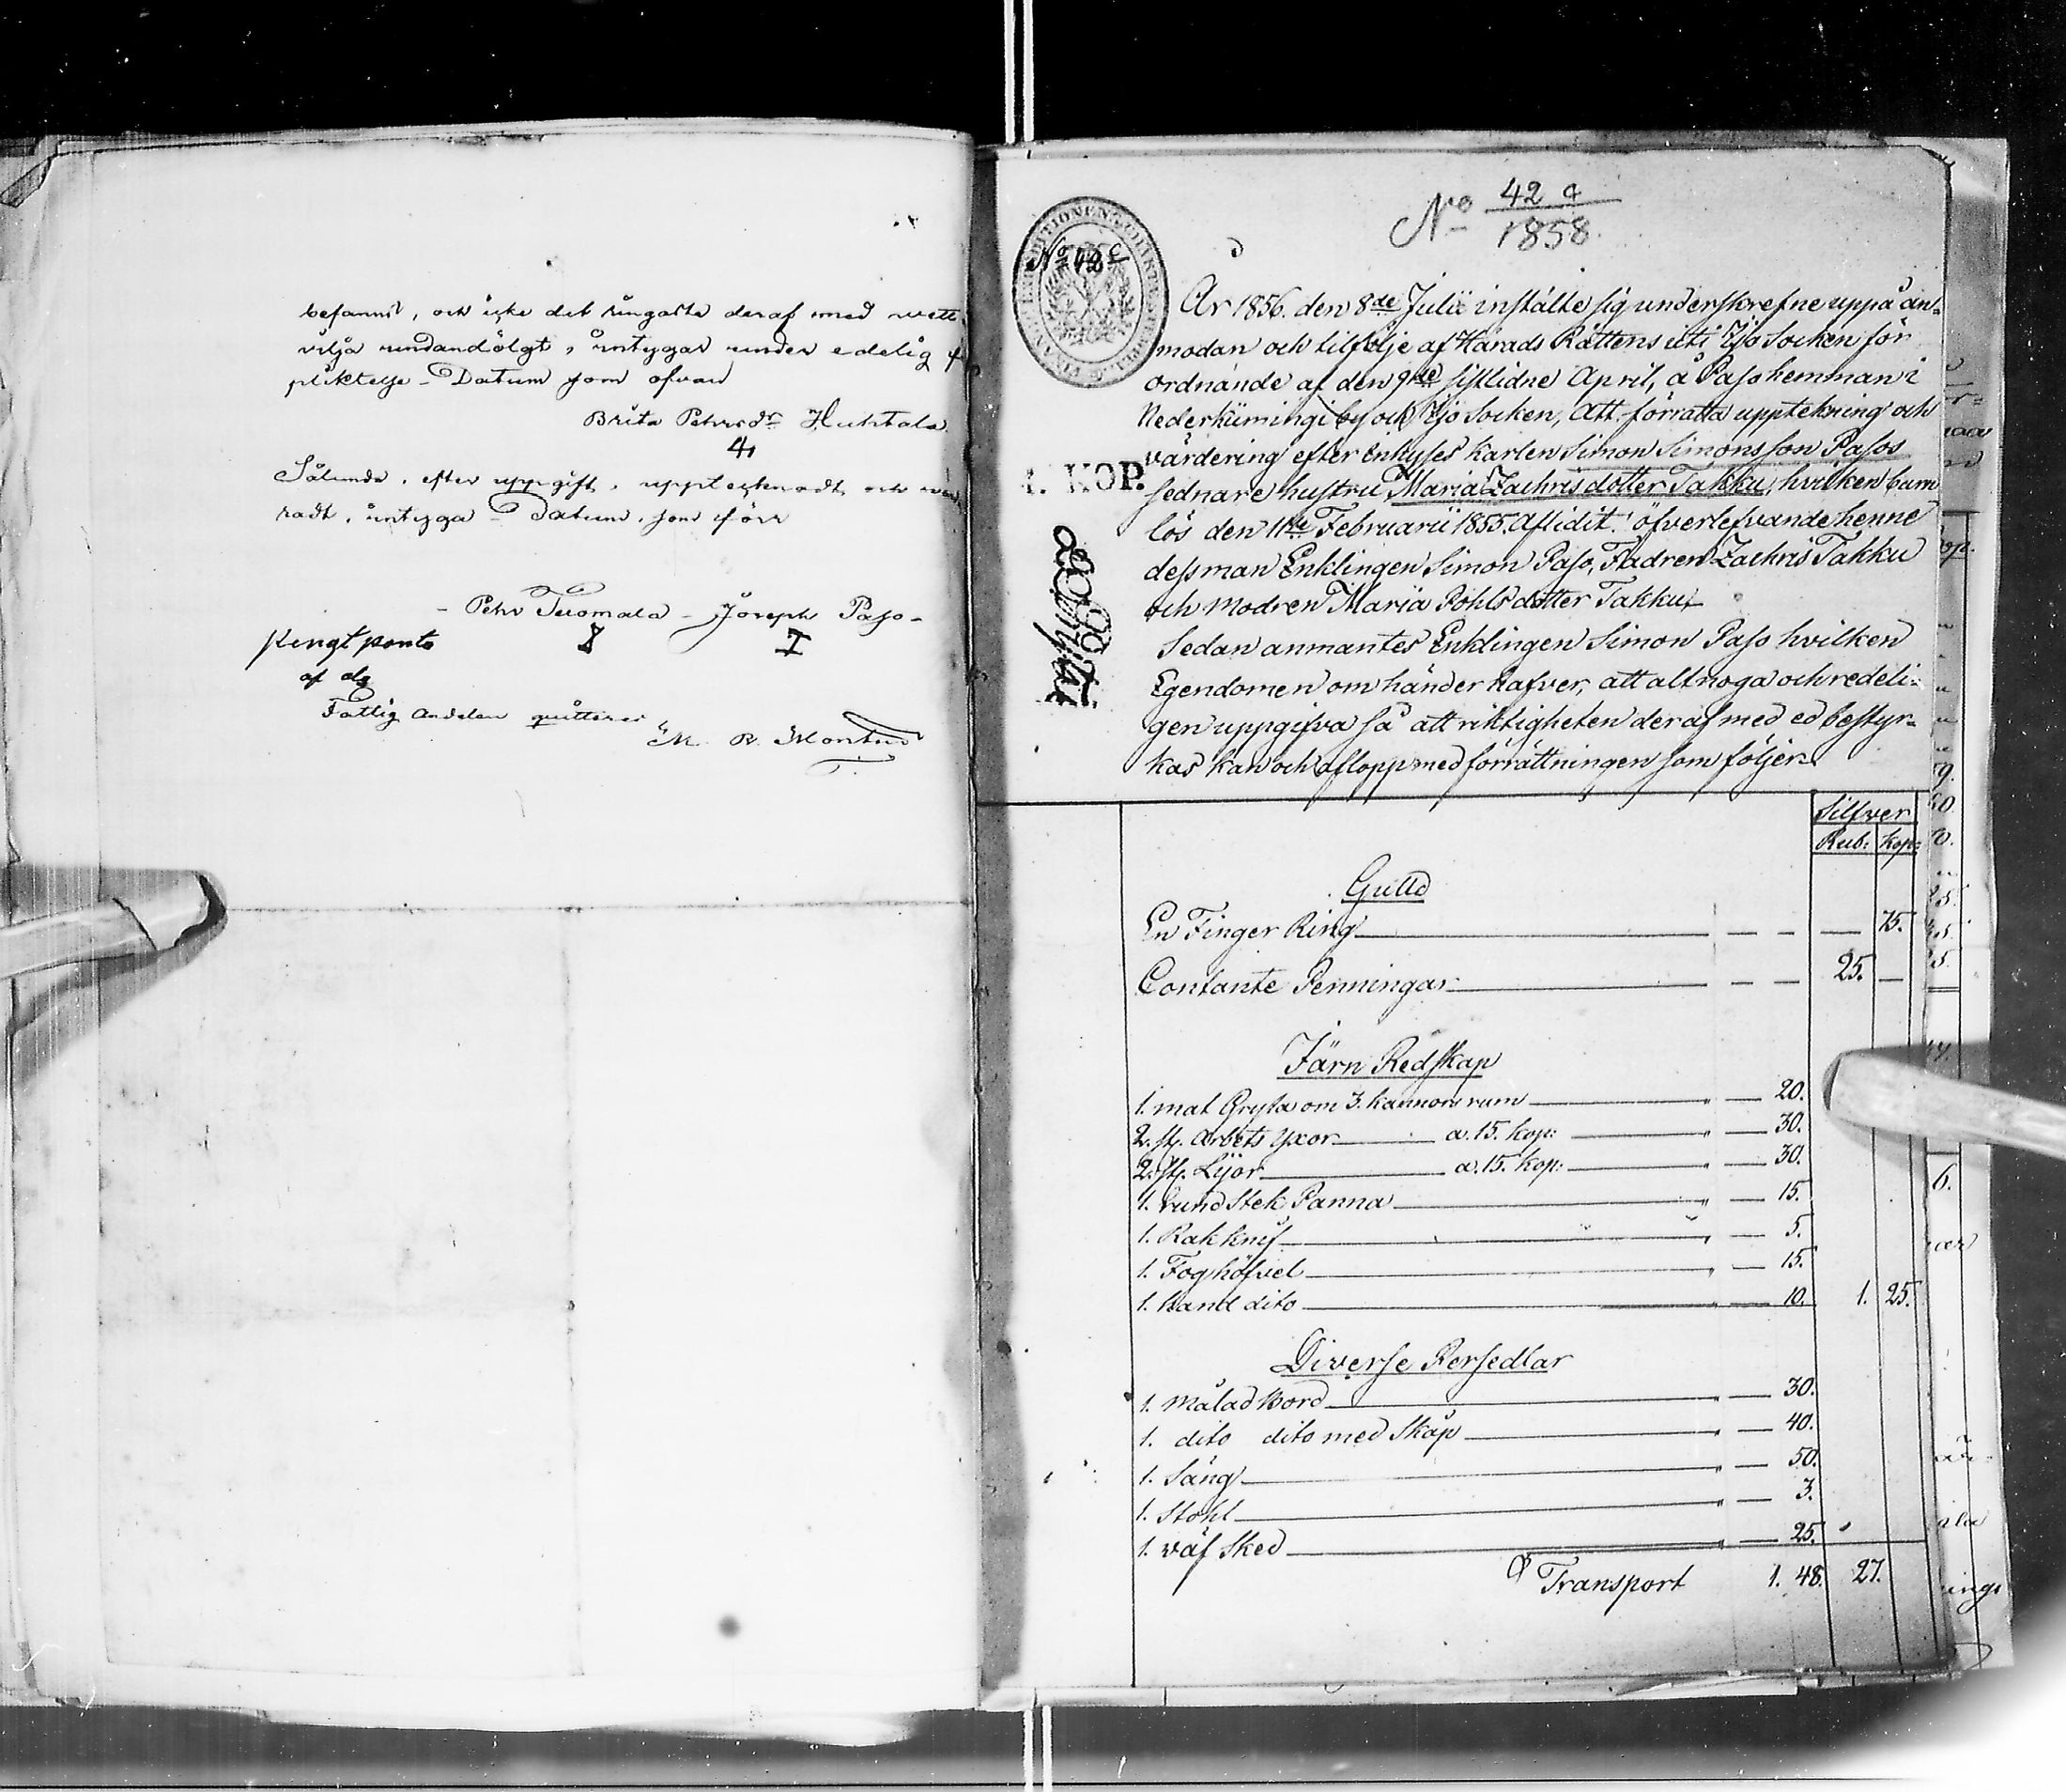 befanns, och icke det ringaste deraf med vett
vilja undandölgt, intygas under edelig
pliktelse - Datum som ofvan
Brita Petersdr Huhtala
Sålunda, efter uppgift, upptecknadt och
radt, intyga - Datum som förr
- Petr Tuomala - Joseph Paso -
af dg
Fattig andelen quitteras
M. R. Montin
No 42 c
1858
No 42 c
År 1856. den 8de Julii instälte sig underskrefne uppå an-
modan och tilfölje af Härads Rättens uti Ijo Socken för
ordnande af den 9de sistlidne April, å Paso hemman i
Nederkiimingi by och Ijo Socken, att förrätta upptekning och
värdering efter Enhyses Karlen Simon Simonsson Pasos
4. KOP.
sednare hustru Maria Zachrisdotter Takku, hvilken barn
lös den 11te Februarii 1855. Aflidit. öfverlefvande henne
dess man Enklingen Simon Paso, Fadren Zachris Takku
och Modren Maria Pohls dotter Takku
Sedan anmantes Enklingen Simon Paso hvilken
Egendomen om händer hafver, att alt noga och redeli-
gen uppgifva så att riktigheten deraf med ed bestyr-
kas kan och aflopp med förrättningen som följer
Silfver
Rub: Kop:
Guld
En Finger Ring — — — — 75.
Contante Penningar — — — 25. —
Järn Redskap
1. mat Gryta om 3. kannors rum — " — 20.
2. st. Arbets Yxor — a. 15. kop: — " — 30.
2. st. Lijor — a. 15. kop: — " — 30.
1. rund Stek Panna — " — 15.
1. Rak knif — " — 5.
1. Fog höfvel — " — 15.
1. hand dito — " — 10. 1. 25.
Diverse Persedlar
1. målad Bord — " — 30.
1. dito dito med Skåp — " — 40.
1. Säng — " — 50.
1. Stohl — " — 3.
1. väf Sked — " — 25.
Transport 1. 48. 27.